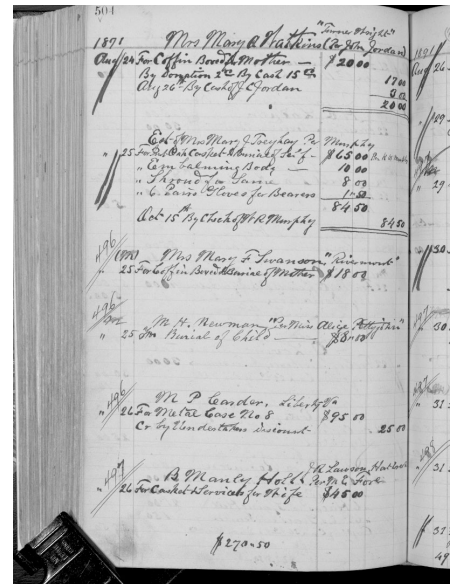 504
"Turner Wright"
1891 Mrs Mary A Watkins (Per Jno Jordan)
Aug 24 For Coffin Box & Mother — $20 00
By Donation 2 00 By Cash 15 00 17 00
Aug 26th By Cash of J C Jordan 3 00
20 00
Est of Mrs Mary J Per Murphy
" 25 For Casket & Burial of Self — $65 00
" Embalming Body — 10 00
" Shroud for Same 8 00
" 6 Pairs Gloves for Bearers 1 50
84 50
Oct 15th By Check of W R Murphy 84 50
496
Mrs Mary F Swanson, "Rivermont"
" 25 For Coffin Box & Burial of Mother $18 00
496
M. H. Newman "Per Miss Alice Pettyjohn"
" 25 For Burial of Child — $8 00
496
M P Carder, Liberty Va
" 26 For Metal Case No 8 $95 00
Cr by Undertakers discount — 25 00
497
B Manly Holt R Lawson
Per M C Ford
" 26 For Casket & Services for Wife $45 00
$270-50
1891
Aug 26
29
" 29
30
497
30
31
498
31
31
49